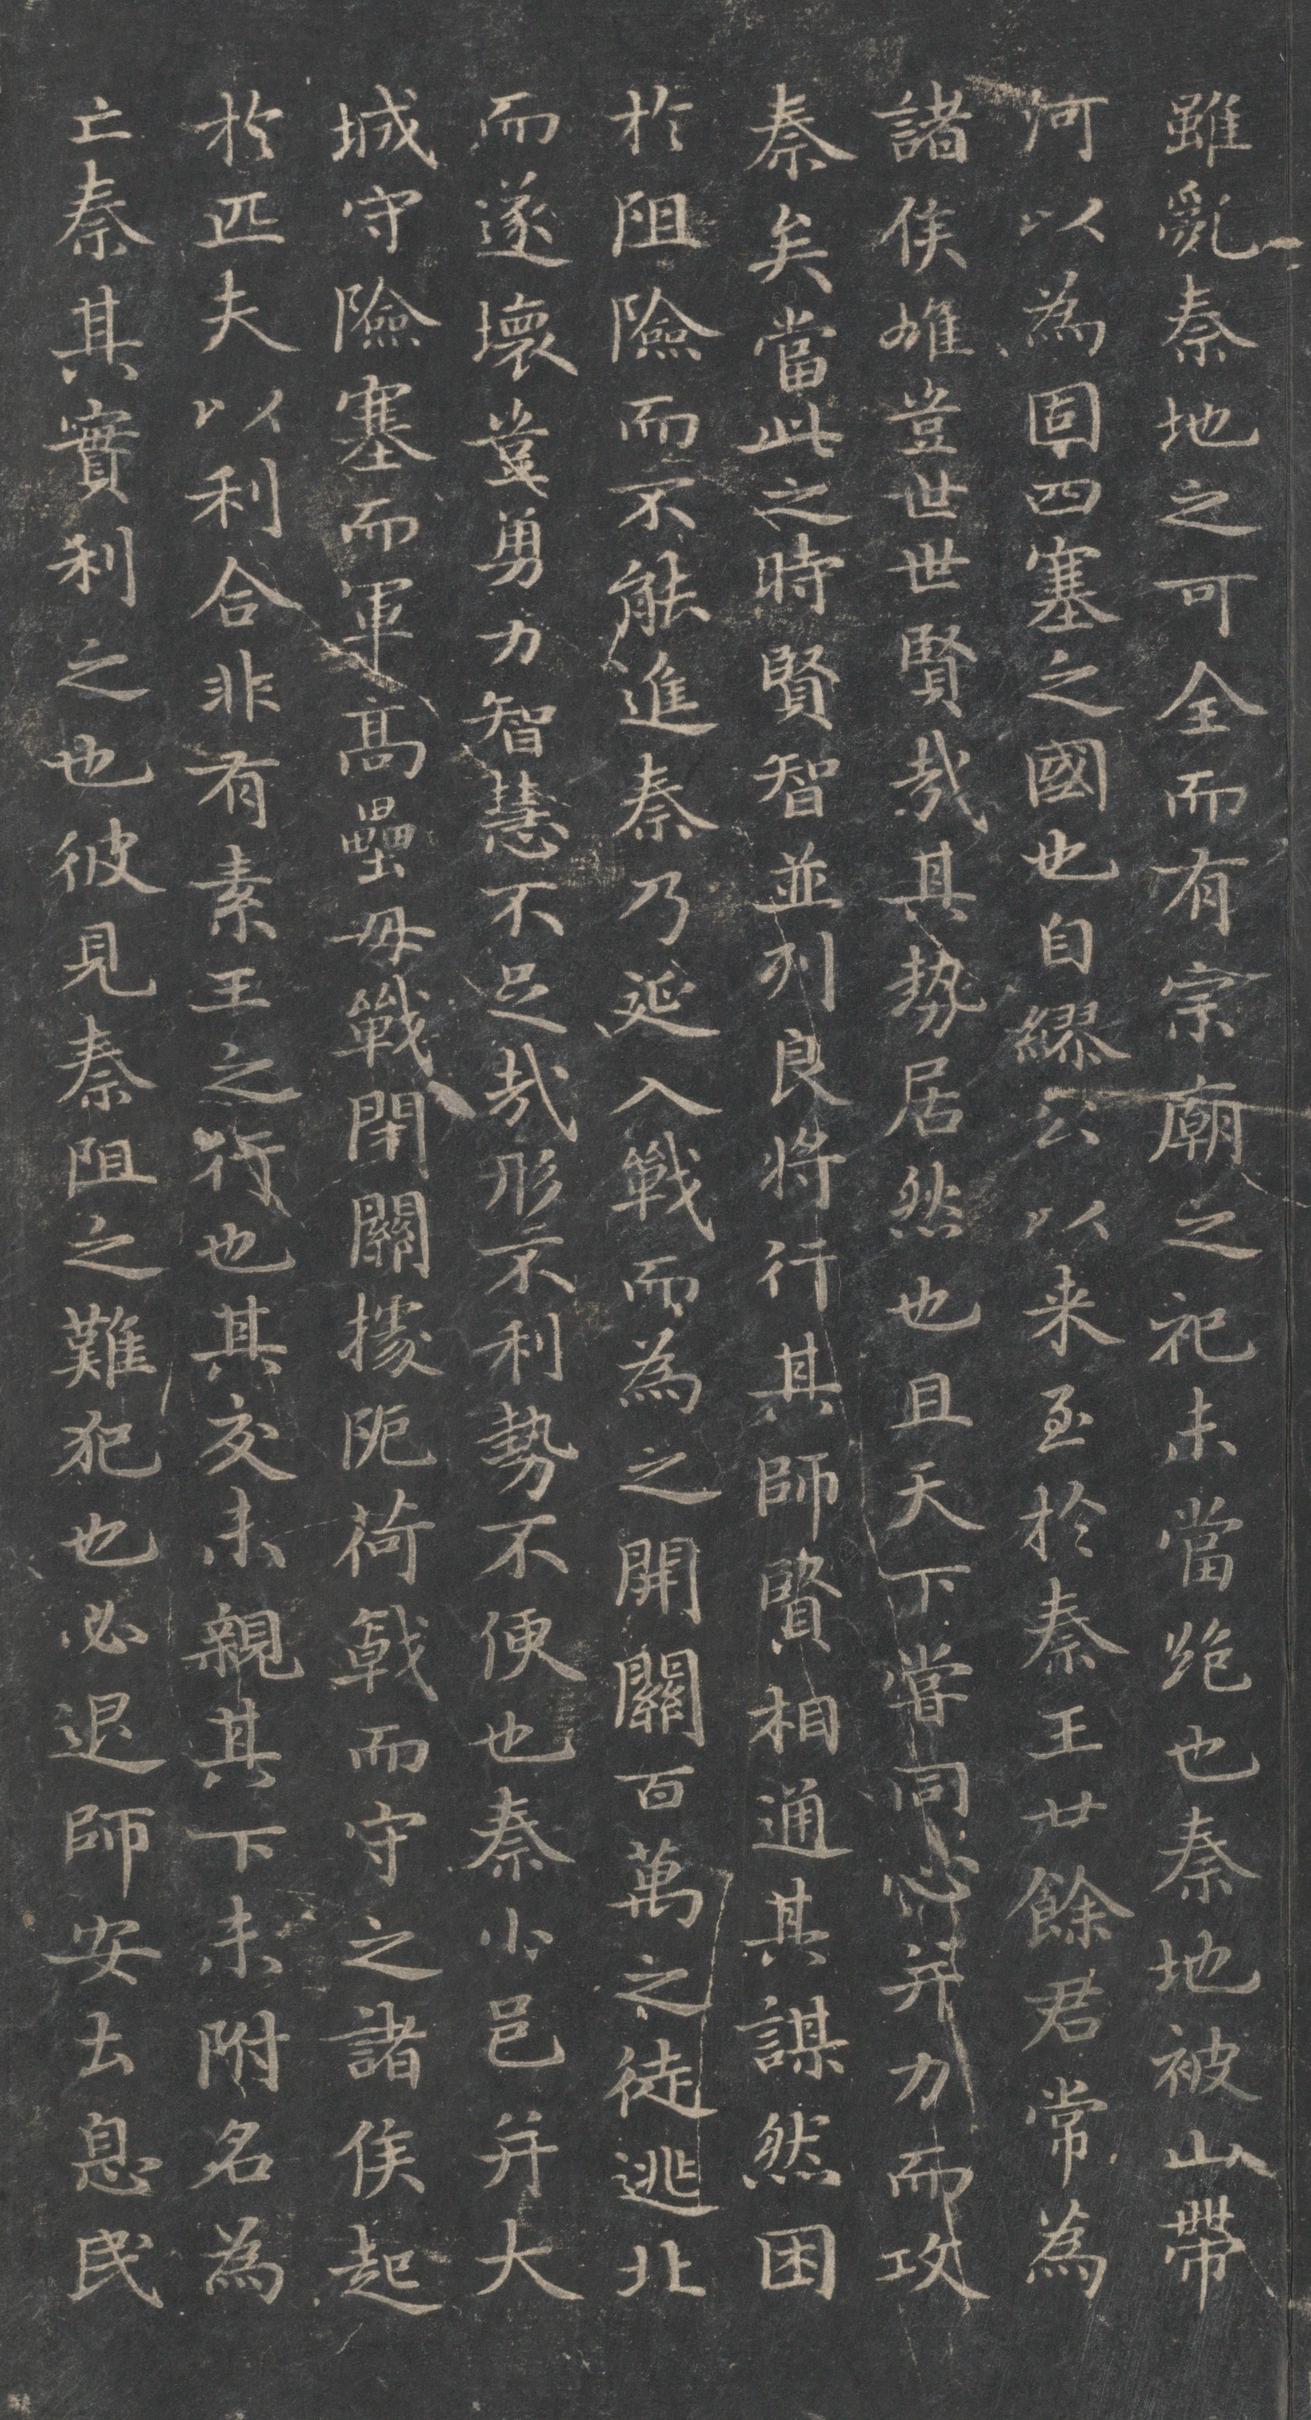 雖亂秦地之可全而有宗廟之祀未當絶也秦地被山帶
河以為固四塞之國也自繆公以来至於秦王廿餘君常為
諸侯雄豈世世賢哉其势居然也且天下嘗同心并力而攻
秦矣當此之時賢智並列良將行其師賢相通其謀然困
於阻險而不能進秦乃延入戰而為之開關百萬之徒逃北
而遂壞豈勇力智慧不足哉形不利勢不便也秦小邑并大
城守險塞而軍高壘毋戰閉關據阨荷戟而守之諸侯起
於匹夫以利合非有素王之行也其交未親其下未附名為
亡秦其實利之也彼見秦阻之難犯也必退師安去息民